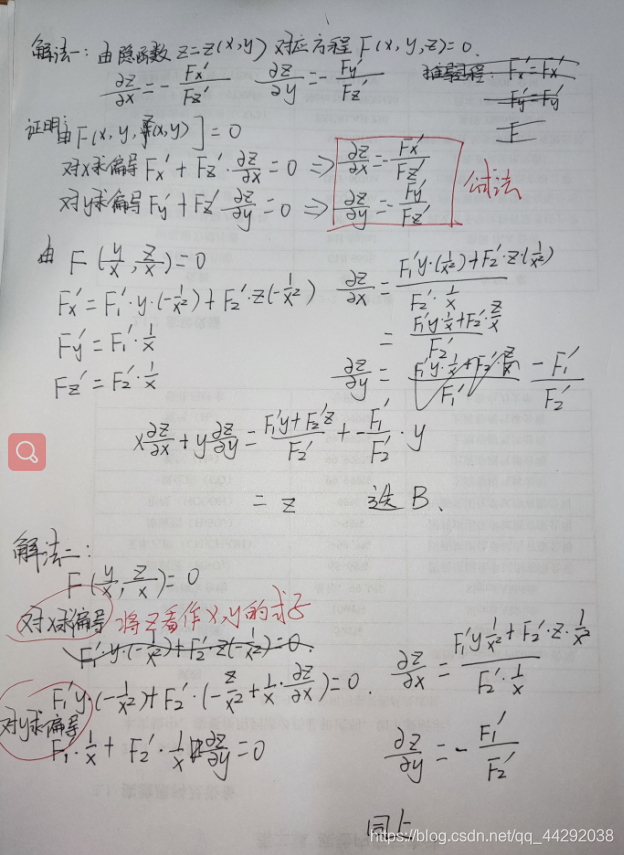 解法一:由隐函数 z=z(x,y) 对应方程 F(x,y,z)=0.
∂z/∂x = -Fx'/Fz'  ∂z/∂y = -Fy'/Fz'
Fx'=Fx'
Fy'=Fy'
证明:由F(x,y,f(x,y)]=0
对x求偏导 Fx'+Fz'·∂z/∂x=0 ⇒ ∂z/∂x=-Fx'/Fz'
对y求偏导 Fy'+Fz'·∂z/∂y=0 ⇒ ∂z/∂y=-Fy'/Fz'
公式法
由 F(y/x, z/x)=0
Fx'=F1'·y·(-1/x²)+F2'·z(-1/x²)  ∂z/∂x=(F1'y·(1/x²)+F2'·z(1/x²))/(F2'·1/x)
=(F1'y·1/x+F2'·z/x)/F2'
Fy'=F1'·1/x
Fz'=F2'·1/x  ∂z/∂y= (F1'y·1/x+F2'·z/x)/F1'  -F1'/F2'
x∂z/∂x+y∂z/∂y=(F1'y+F2'z)/F2'+-F1'/F2'·y
=z  选B.
解法二:
F(y/x, z/x)=0
对x求偏导 将z看作x,y的式子
F1'·y·(-1/x²)+F2'·z(-1/x²)=0.
F1'y·(-1/x²)+F2'·(-z/x²+1/x·∂z/∂x)=0.  ∂z/∂x=(F1'y1/x²+F2'·z·1/x²)/(F2'·1/x)
对y求偏导
F1'·1/x+F2'·1/x ∂z/∂y=0  ∂z/∂y=-F1'/F2'
同上
https://blog.csdn.net/qq_44292038